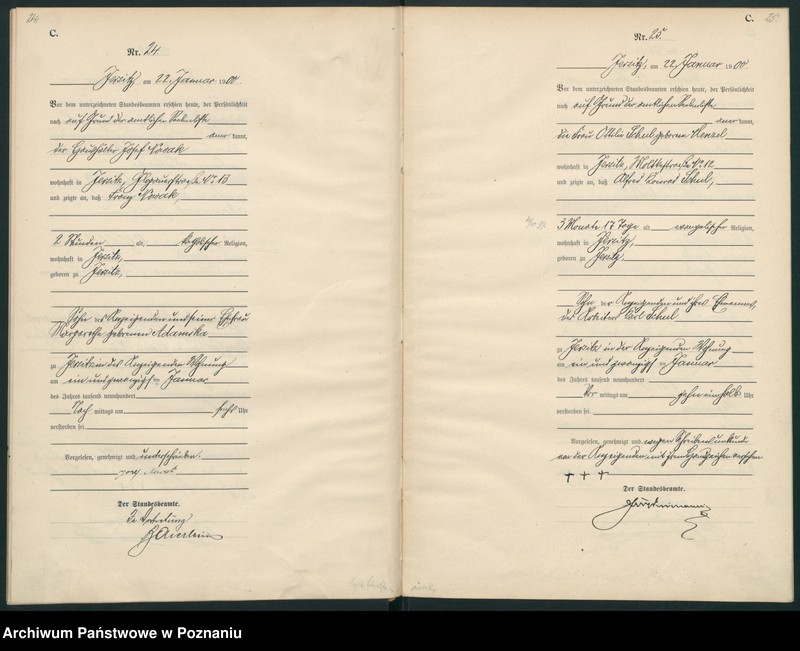 24.
C.
Nr. 24
Jersitz, am 22. Januar 1900.
Vor dem unterzeichneten Standesbeamten erschien heute, der Persönlichkeit
nach auf Grund der amtlichen
aner kannt,
der Haushälter Josef Nowak
wohnhaft in Jersitz, No 13
und zeigte an, daß Franz Nowak,
2 Stunden alt, katholischer Religion,
wohnhaft in Jersitz,
geboren zu Jersitz,
Sohn des Anzeigenden und seiner Ehefrau
Margarethe geborenen Adamska
zu Jersitz in des Anzeigenden Wohnung
am ein und zwanzigsten Januar
des Jahres tausend neunhundert
Nach mittags um sechs Uhr
verstorben sei.
Vorgelesen, genehmigt und unterschrieben.
Josef Nowak
Der Standesbeamte.
In Vertretung
25.
C.
Nr. 25.
Jersitz, am 22. Januar 1900.
Vor dem unterzeichneten Standesbeamten erschien heute, der Persönlichkeit
nach auf Grund der amtlichen
aner kannt,
die Frau Ottilie Schul geborene Menzel
wohnhaft in Jersitz, Moltkestraße No 12
und zeigte an, daß Alfred Konrad Schul,
3 Monate 17 Tage alt evangelischer Religion,
wohnhaft in Jersitz,
geboren zu Jersitz,
Sohn der Anzeigenden und ihres Ehemannes,
des Arbeiters Carl Schul
zu Jersitz in der Anzeigenden Wohnung
am ein und zwanzigsten Januar
des Jahres tausend neunhundert
Vor mittags um zehn einhalb Uhr
verstorben sei.
Vorgelesen, genehmigt und wegen Schreibensunkunde
von der Anzeigenden mit ihrem Handzeichen versehen
+ + +
Der Standesbeamte.
Archiwum Państwowe w Poznaniu